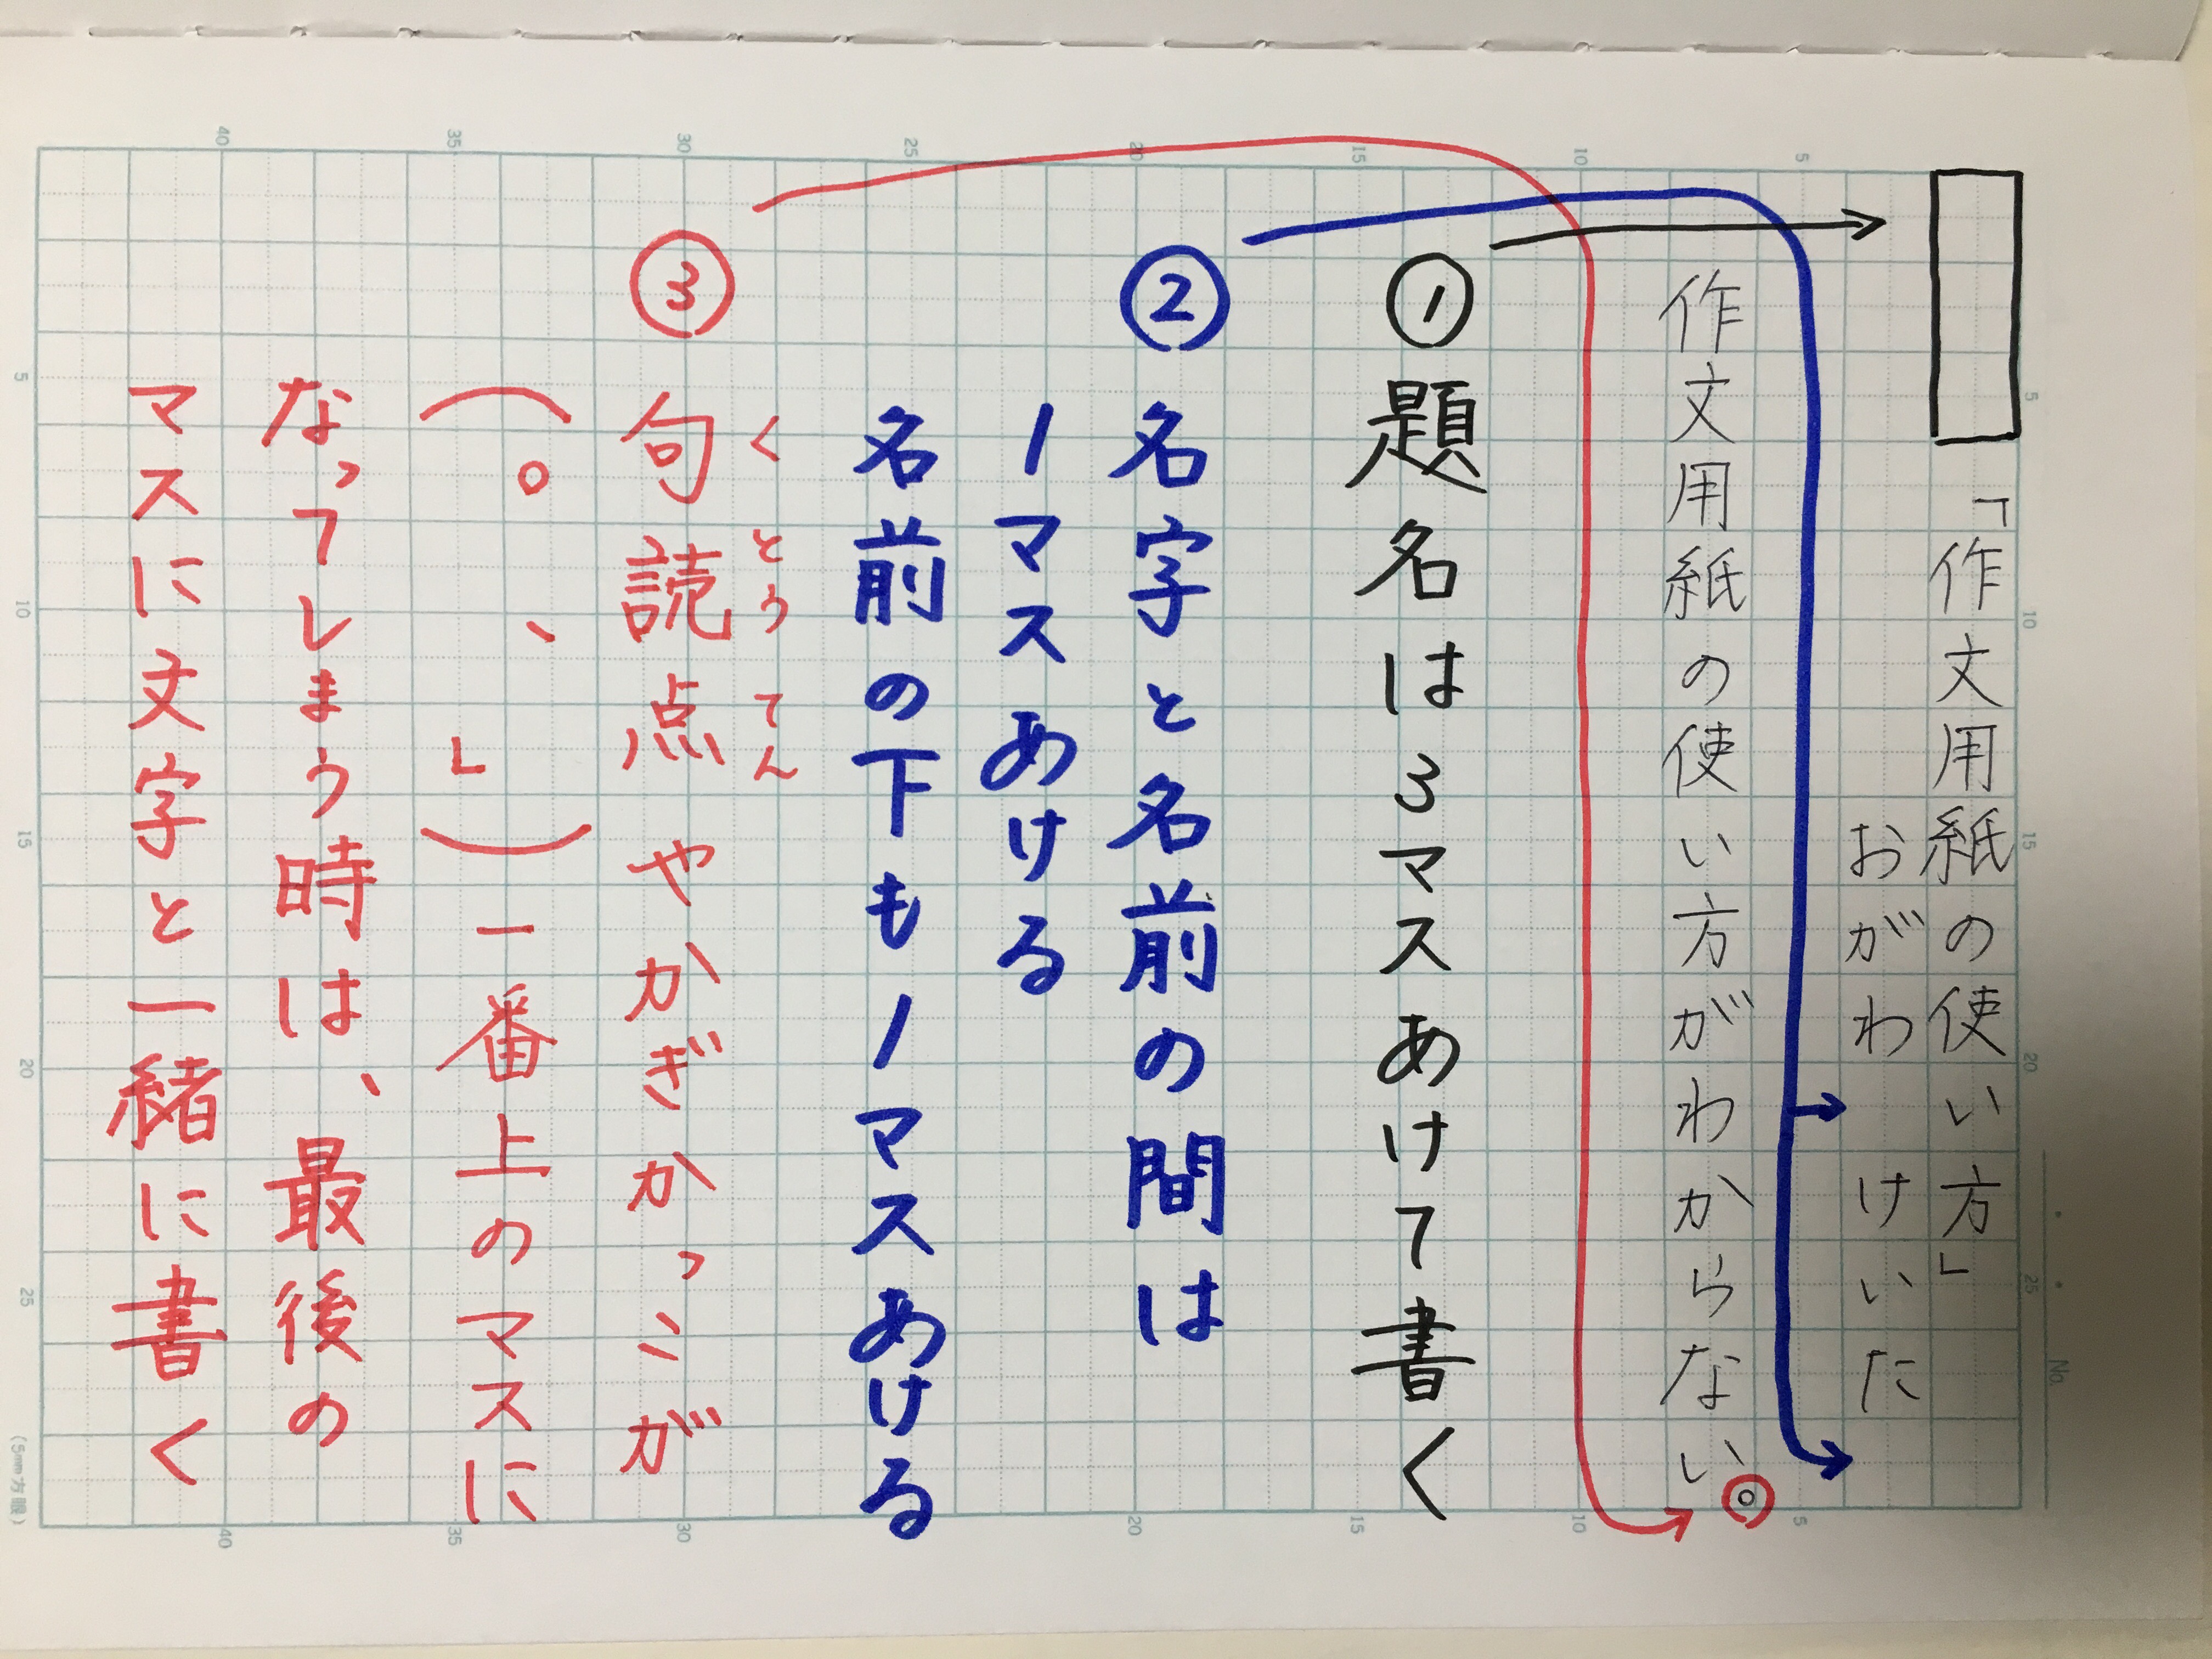 「作文用紙の使い方」
おがわ　けいた
作文用紙の使い方がわからない。
①題名は3マスあけて書く
②名字と名前の間は
1マスあける
名前の下も1マスあける
くとうてん
③句読点やかぎかっこが
（。、」）一番上のマスに
なってしまう時は、最後の
マスに文字と一緒に書く
No.
5
10
15
20
25
30
35
40
5
10
15
20
25
5
10
15
20
25
5
10
15
20
30
35
40
(5mm方眼)